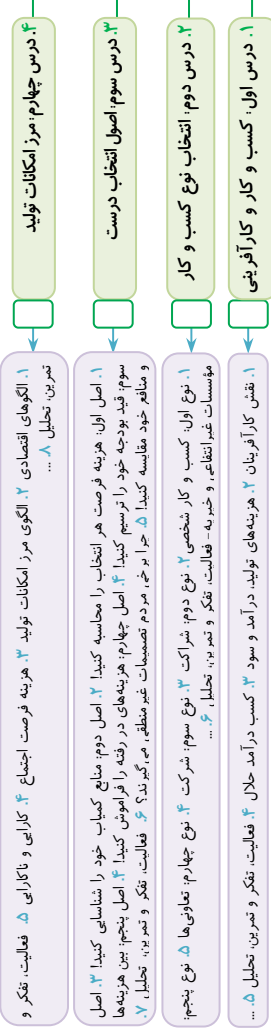 ۱. درس اول: کسب و کار و کارآفرینی
۱. نقش کارآفرینان ۲. هزینه‌های تولید، درآمد و سود ۳. کسب درآمد حلال ۴. فعالیت، تفکر و تمرین، تحلیل ۵. ...
۲. درس دوم: انتخاب نوع کسب و کار
۱. نوع اول: کسب و کار شخصی ۲. نوع دوم: شراکت ۳. نوع سوم: شرکت ۴. نوع چهارم: تعاونی‌ها ۵. نوع پنجم:
مؤسسات غیرانتفاعی و خیریه- فعالیت، تفکر و تمرین، تحلیل ۶. ...
۳. درس سوم: اصول انتخاب درست
۱. اصل اول: هزینه فرصت هر انتخاب را محاسبه کنید! ۲. اصل دوم: منابع کمیاب خود را شناسایی کنید! ۳. اصل
سوم: قید بودجه خود را ترسیم کنید! ۴. اصل چهارم: هزینه‌های در رفته را فراموش کنید! ۴. اصل پنجم: بین هزینه‌ها
و منافع خود مقایسه کنید! ۵. چرا برخی مردم تصمیمات غیرمنطقی می‌گیرند؟ ۶. فعالیت، تفکر و تمرین، تحلیل ۷.
۴. درس چهارم: مرز امکانات تولید
۱. الگوهای اقتصادی ۲. الگوی مرز امکانات تولید ۳. هزینه فرصت اجتماع ۴. کارایی و ناکارایی ۵. فعالیت، تفکر و
تمرین، تحلیل ۸. ...